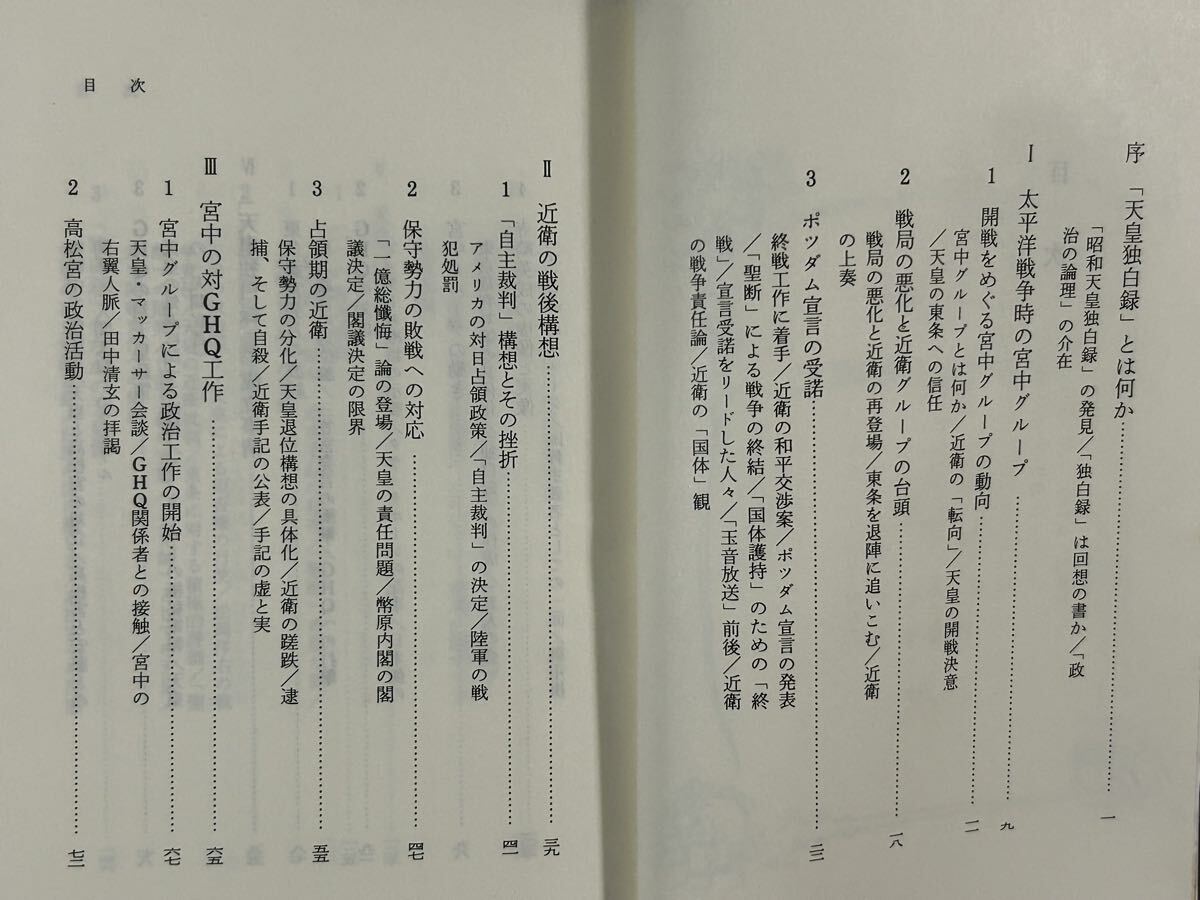 序 「天皇独白録」とは何か……………………一
「昭和天皇独白録」の発見/「独白録」は回想の書か/「政
治の論理」の介在
Ⅰ 太平洋戦争時の宮中グループ……………………九
1 開戦をめぐる宮中グループの動向……………………一一
宮中グループとは何か/近衛の「転向」/天皇の開戦決意
/天皇の東条への信任
2 戦局の悪化と近衛グループの台頭……………………一八
戦局の悪化と近衛の再登場/東条を退陣に追いこむ/近衛
の上奏
3 ポツダム宣言の受諾……………………二二
終戦工作に着手/近衛の和平交渉案/ポツダム宣言の発表
/「聖断」による戦争の終結/「国体護持」のための「終
戦」/宣言受諾をリードした人々/「玉音放送」前後/近衛
の戦争責任論/近衛の「国体」観
目次
Ⅱ 近衛の戦後構想……………………三九
1 「自主裁判」構想とその挫折……………………四一
アメリカの対日占領政策/「自主裁判」の決定/陸軍の戦
犯処罰
2 保守勢力の敗戦への対応……………………四七
「一億総懺悔」論の登場/天皇の責任問題/幣原内閣の閣
議決定/閣議決定の限界
3 占領期の近衛……………………五五
保守勢力の分化/天皇退位構想の具体化/近衛の蹉跌/逮
捕、そして自殺/近衛手記の公表/手記の虚と実
Ⅲ 宮中の対GHQ工作……………………六五
1 宮中グループによる政治工作の開始……………………六七
天皇・マッカーサー会談/GHQ関係者との接触/宮中の
右翼人脈/田中清玄の拝謁
2 高松宮の政治活動……………………七二